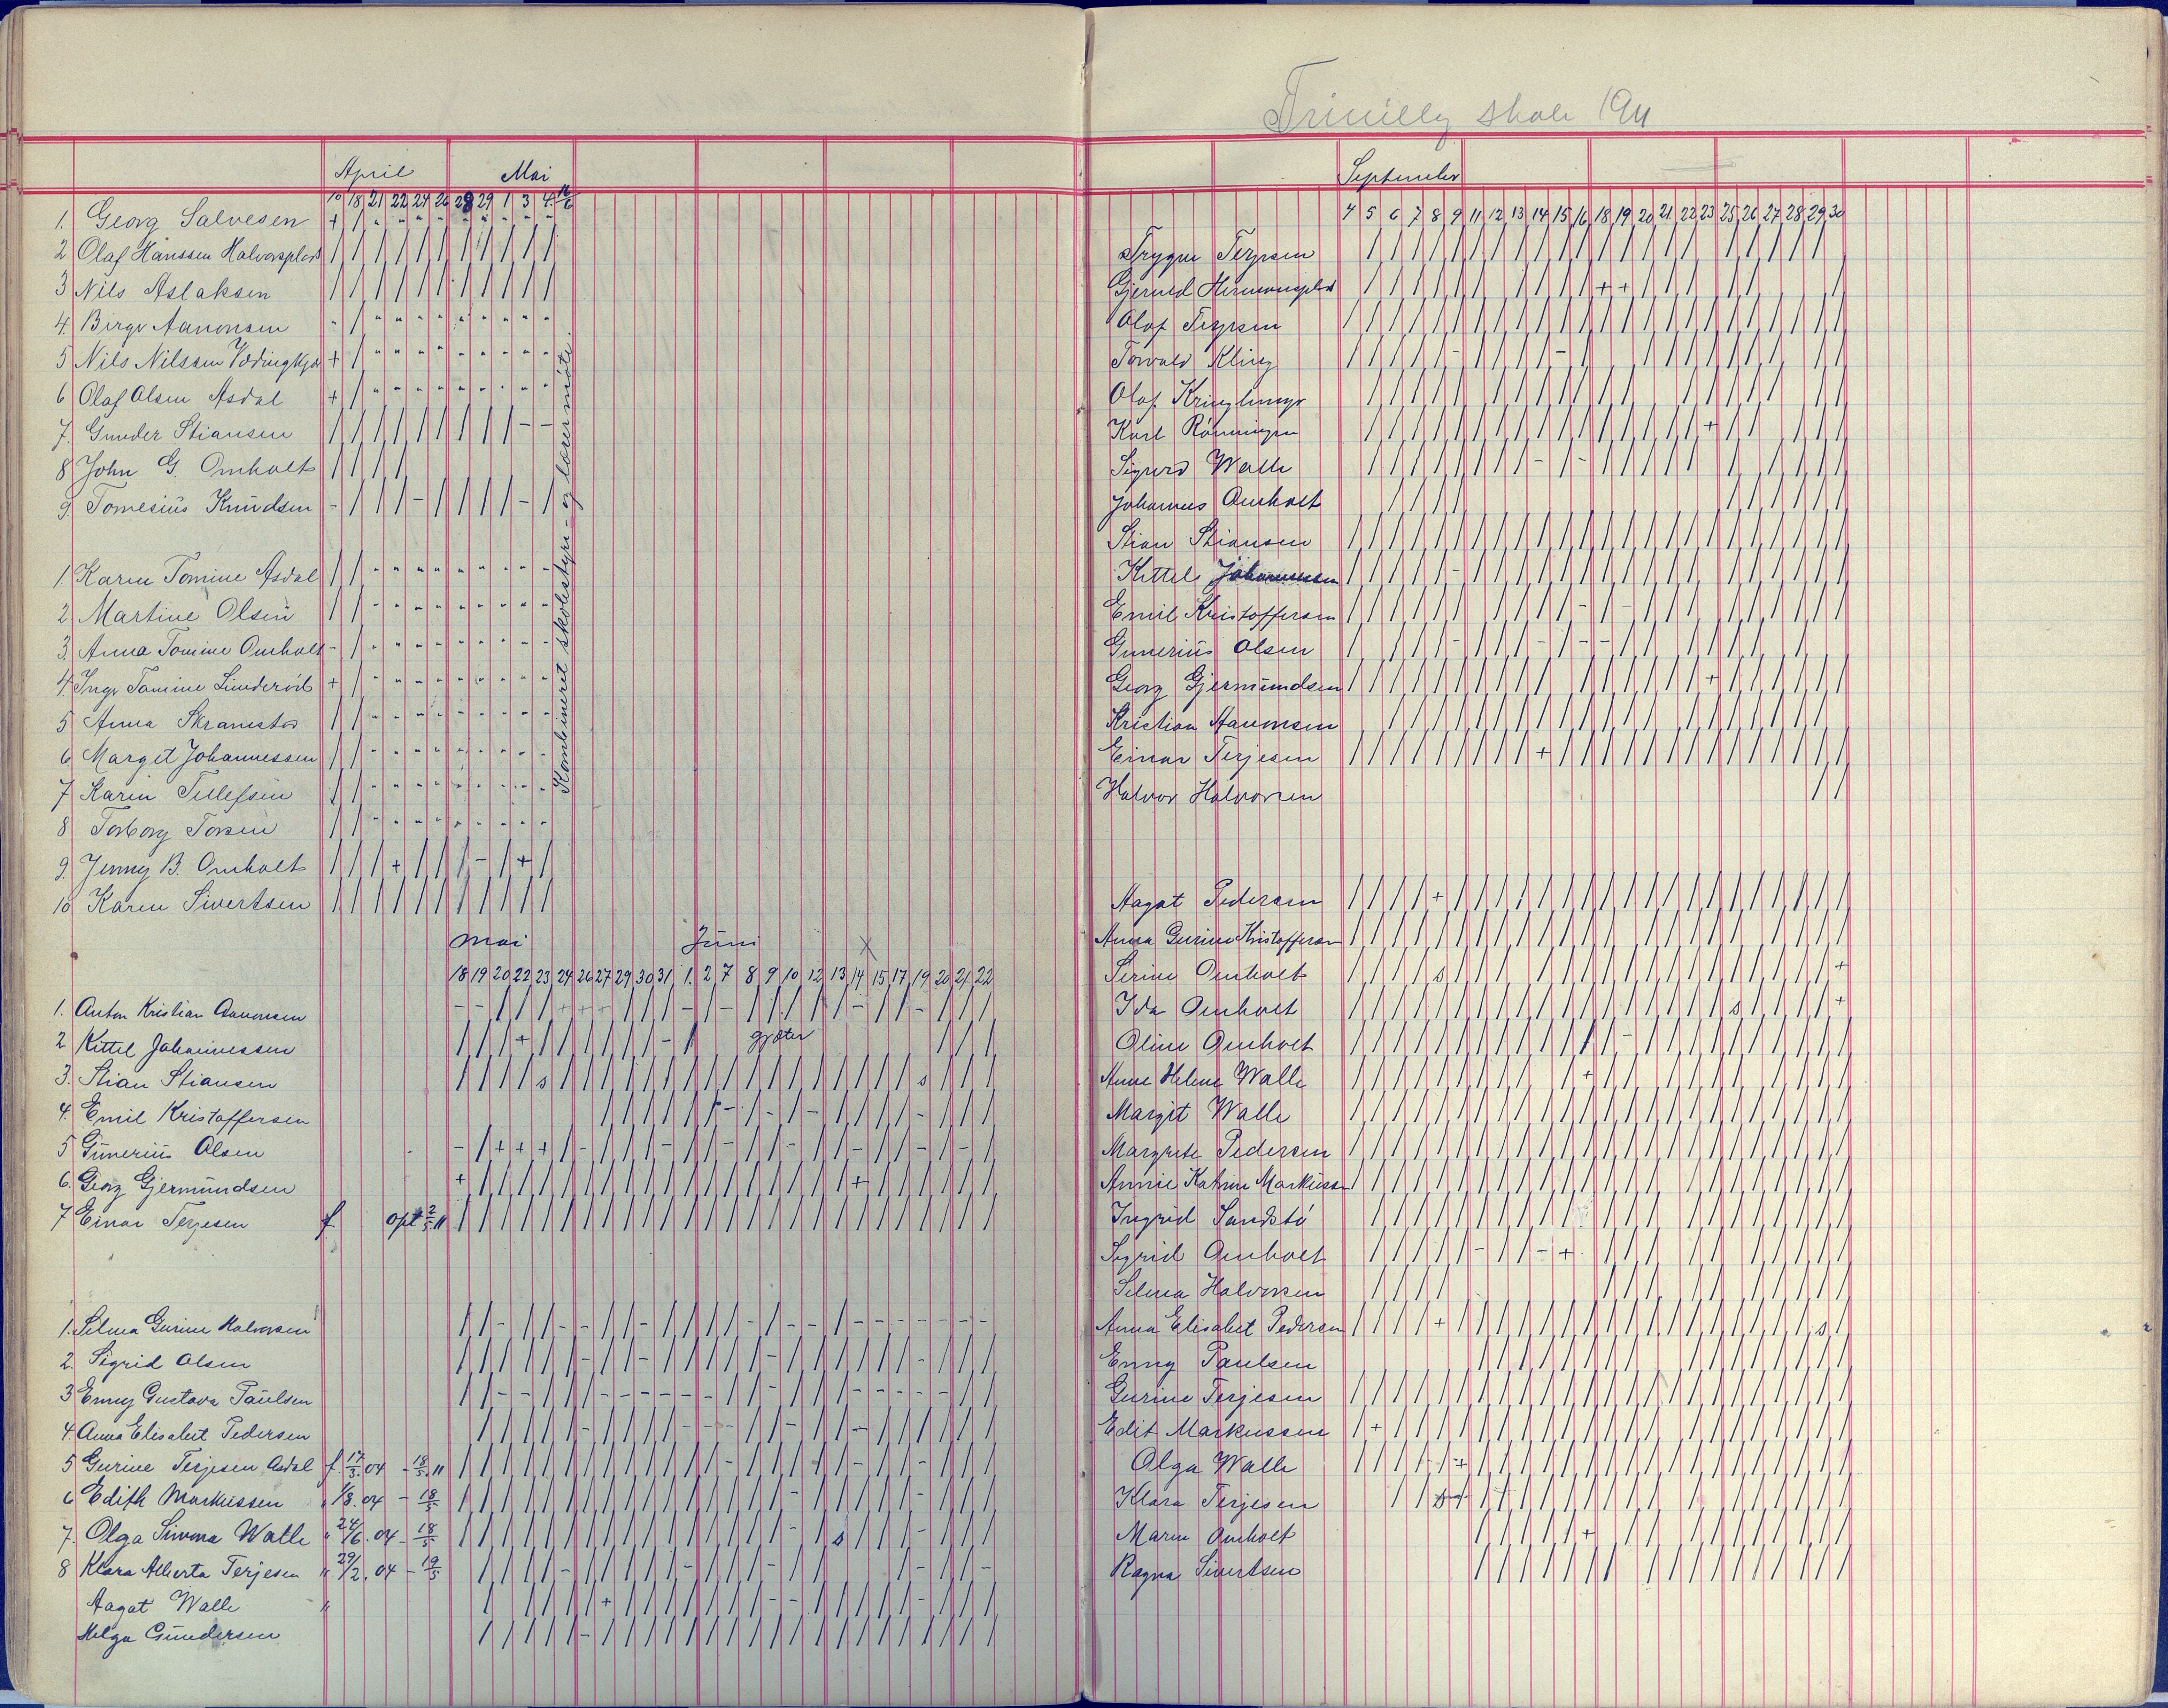 April Mai
10 18 21 22 24 26 28 29 1 3 4. 16/6
1. Georg Salvesen
2 Olaf Hanssen Halvorsplads
3 Nils Aslaksen
4. Birger Aanonsen
5 Nils Nilssen
6 Olaf Olsen Asdal
7. Gunder Stiansen
8 John G. Omholt
9. Tomesius Knudsen
Kombineret skolestyre- og lærermøte.
1. Karen Tomine Asdal
2 Martine Olsen
3. Anna Tomine Omholt
4. Inga Tomine Lunderöd
5 Anna Skramstad
6 Margit Johannessen
7 Karen Tellefsen
8 Torborg Torsen
9. Jenny B. Omholt
10 Karen Sivertsen
Mai Juni X
18 19 20 22 23 24 26 27 29 30 31 1. 2 7 8 9 10 12 13 14 15 17 19 20 21 22
1. Anton Kristian Aanonsen
2 Kittel Johannessen gjæter
3. Stian Stiansen
4. Emil Kristoffersen
5 Gunerius Olsen
6. Georg Gjermundsen
7 Einar Terjesen f. opt 2/5.11
1. Selma Gurine Halvorsen
2. Sigrid Olsen
3 Enny Gustava Paulsen
4. Anna Elisabet Pedersen
5 Gurine Terjesen Asdal f. 17/3.04 - 18/5.11
6 Edith Markussen " 1/8.04 - 18/5
7. Olga Simona Walle " 24/6.04 - 18/5
8 Klara Alberta Terjesen " 29/2.04 - 19/5
Aagat Walle "
Helga Gundersen
skole 1911
September
4 5 6 7 8 9 11 12 13 14 15 16 18 19 20 21 22 23 25 26 27 28 29 30
Trygve Terjesen
Gjerulf Hermansplads
Olaf Terjesen
Torvald Kling
Olaf Kringlemyr
Karl Rönningen
Sigurd Walle
Johannes Omholt
Stian Stiansen
Kittel Johannessen
Emil Kristoffersen
Gunerius Olsen
Georg Gjermundsen
Kristian Aanonsen
Einar Terjesen
Halvor Halvorsen
Aagot Pedersen
Anna Gurine Kristoffersen
Serine Omholt
Ida Omholt
Oline Omholt
Anne Helene Walle
Margit Walle
Margrete Pedersen
Annie Katrine Markussen
Ingrid Sandstö
Sigrid Omholt
Selma Halvorsen
Anna Elisabet Pedersen
Enny Paulsen
Gurine Terjesen
Edit Markussen
Olga Walle
Klara Terjesen
Maren Omholt
Ragna Sivertsen